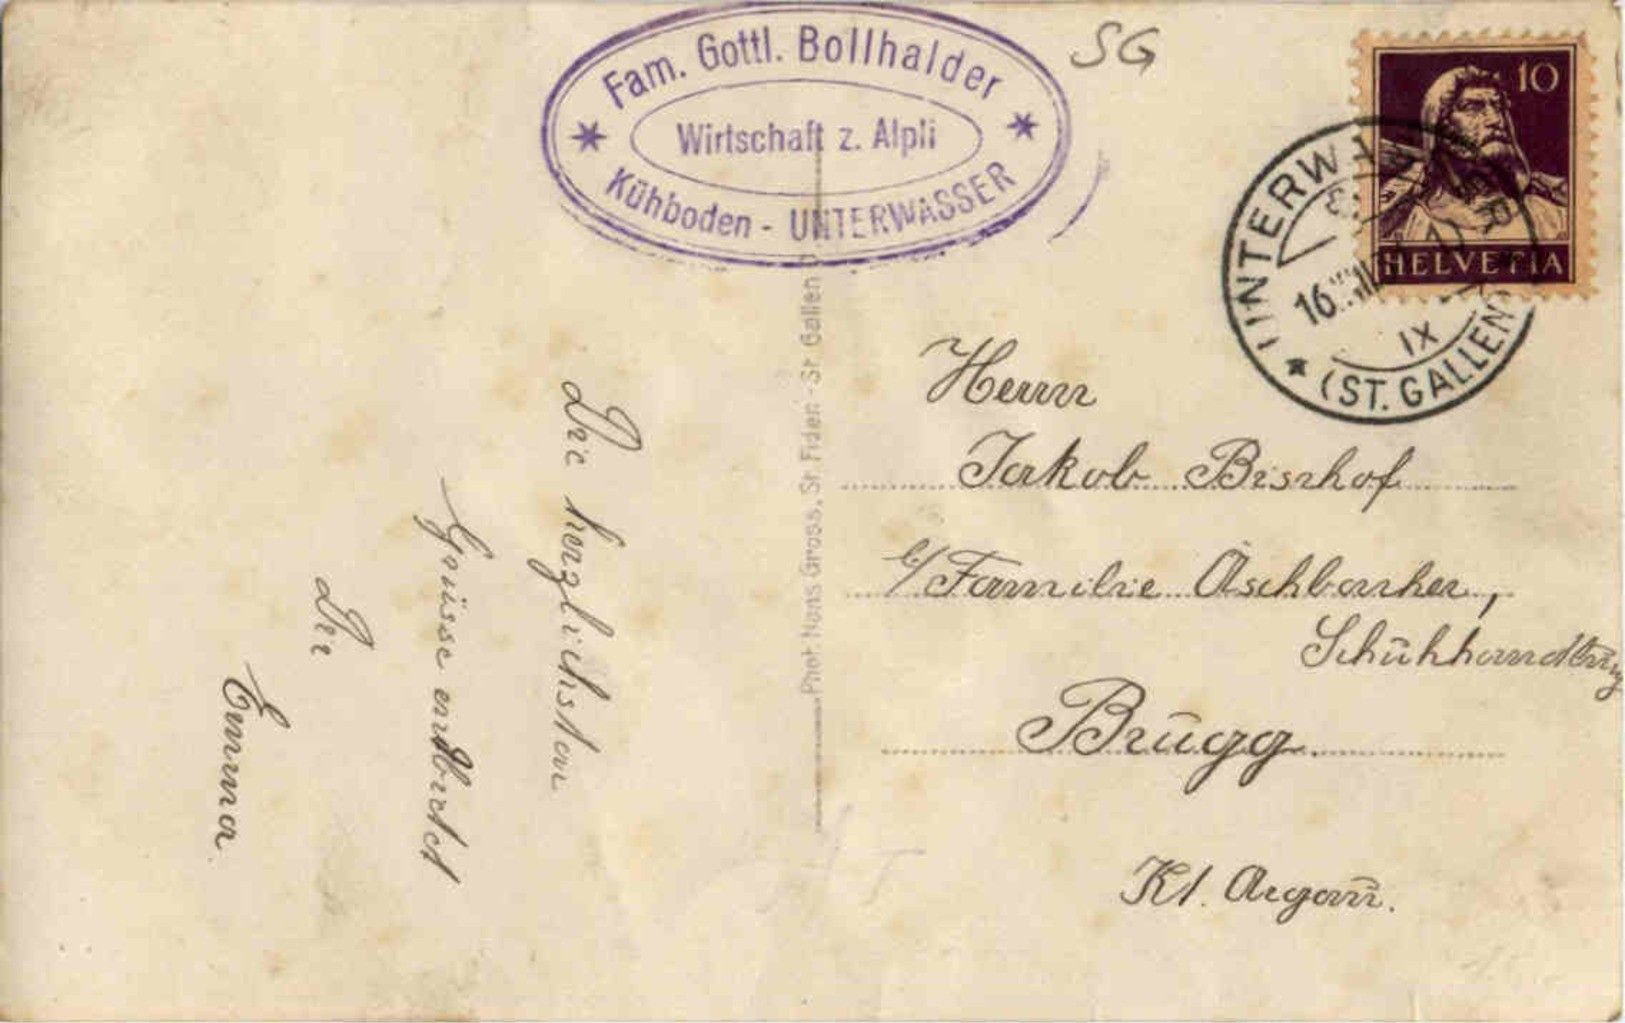 Fam. Gottl. Bollhalder
Wirtschaft z. Alpli
Kühboden - UNTERWASSER
SG
10
HELVETIA
UNTERWASSER
16. VIII
IX
(ST. GALLEN)
Die herzlichsten
Grüsse entbietet
Dir
Emma
Phot. Hans Gross, St. Fiden - St. Gallen
Herrn
Jakob Bischof
b/ Familie Äschbacher,
Schuhhandlung
Brugg.
Kt. Argau.